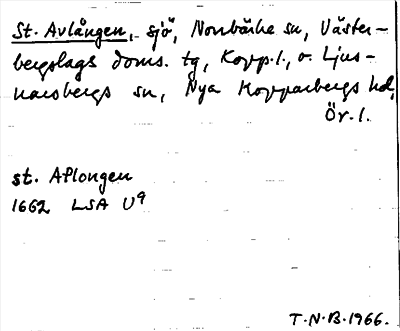 St. Avlången, sjö, Norrbärke sn, Väster-
bergslags doms. tg, Kopp.l., o. Ljus-
narsbergs sn, Nya Kopparbergs hd,
Ör. l.
st. Aflongen
1662 LSA U9
T.N.B.1966.